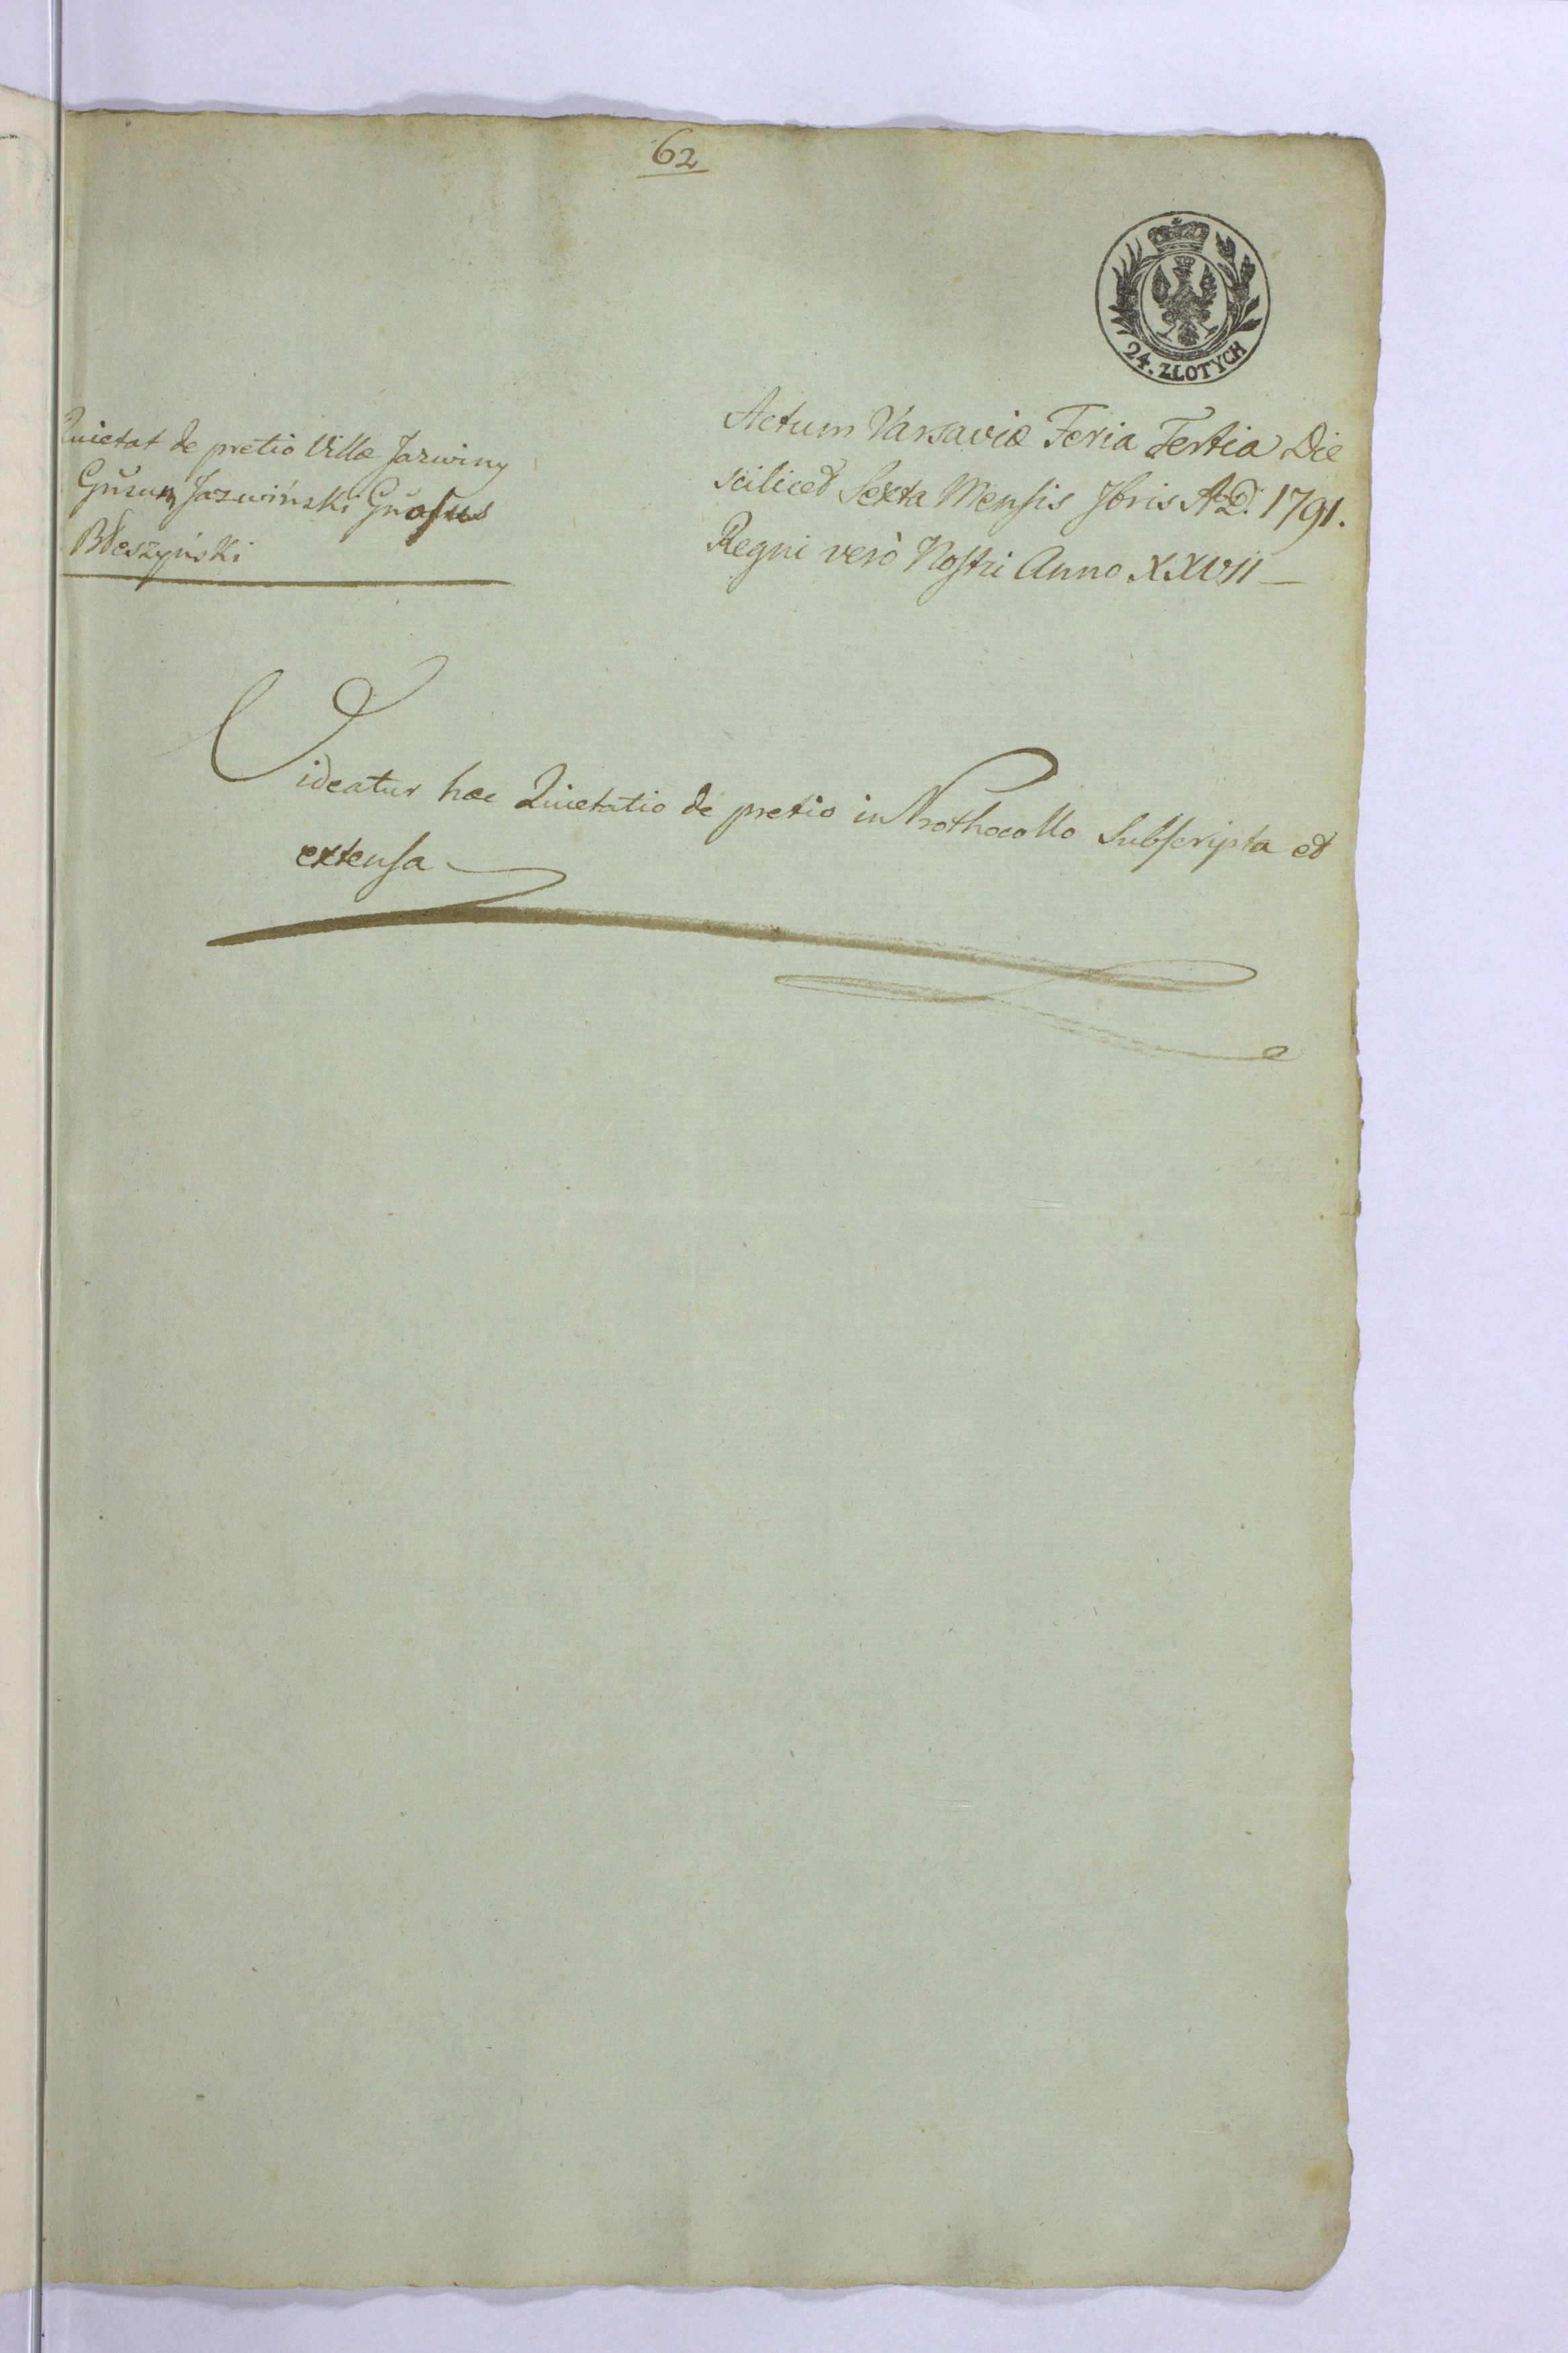 62
24. ZŁOTYCH
Quietat de pretio Villæ Jazwiny
Jazwiński
Błeszyński
Actum Varsaviæ Feria Tertia Die
scilicet Sexta Mensis 7bris A.D. 1791.
Regni verò Nostri Anno XXVII
Videatur hæc Quietatio de pretio in Prothocollo Subscripta et
extensa